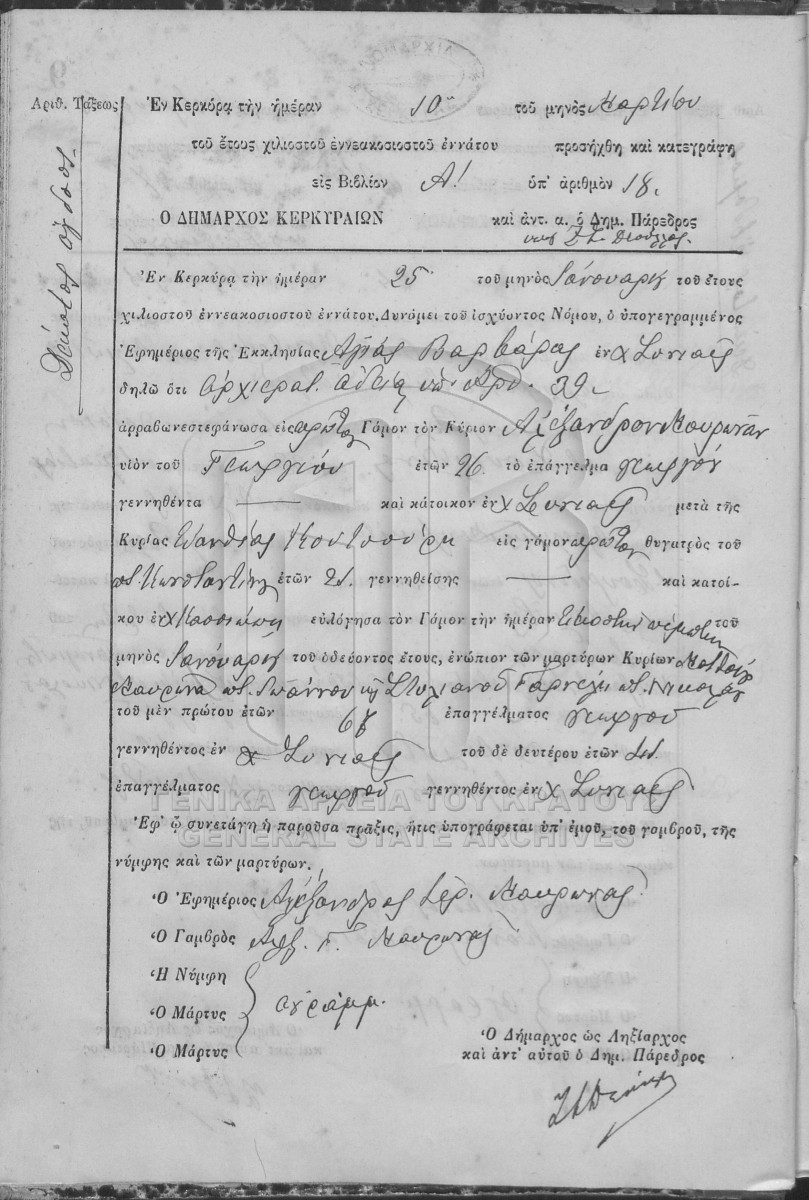 Ἀριθ. Τάξεως
Δέκατος ὄγδοος.
Ἐν Κερκύρᾳ τὴν ἡμέραν 10 τοῦ μηνὸς Μαρτίου
τοῦ ἔτους χιλιοστοῦ ἐννεακοσιοστοῦ ἐννάτου προσήχθη καὶ κατεγράφη
εἰς Βιβλίον Α! ὑπ' ἀριθμὸν 18.
Ο ΔΗΜΑΡΧΟΣ ΚΕΡΚΥΡΑΙΩΝ καὶ ἀντ. α. ὁ Δημ. Πάρεδρος
Ἐν Κερκύρᾳ τὴν ἡμέραν 25 τοῦ μηνὸς Ἰανουαρίου τοῦ ἔτους
χιλιοστοῦ ἐννεακοσιοστοῦ ἐννάτου. Δυνάμει τοῦ ἰσχύοντος Νόμου, ὁ ὑπογεγραμμένος
Ἐφημέριος τῆς Ἐκκλησίας Ἁγίας Βαρβάρας ἐν χ Συνιαῖς
δηλῶ ὅτι ἀρχιερατ. ἀδείᾳ ὑπ' ἀρθ. 39
ἀρραβωνεστεφάνωσα εἰς πρῶτον Γάμον τὸν Κύριον Ἀλέξανδρον Μαυρωνᾶν
υἱὸν τοῦ Γεωργίου ἐτῶν 26. τὸ ἐπάγγελμα γεωργόν
γεννηθέντα — καὶ κάτοικον ἐν χ Συνιαῖς μετὰ τῆς
Κυρίας Ξανθίας Κουτσούρη εἰς γάμον πρῶτον θυγατρὸς τοῦ
ποτ. Κωνσταντίνου ἐτῶν 21. γεννηθείσης — καὶ κατοί-
κου ἐν χ Κασσιώπῃ εὐλόγησα τὸν Γάμον τὴν ἡμέραν Εἰκοστὴν πέμπτην τοῦ
μηνὸς Ἰανουαρίου τοῦ ὁδεύοντος ἔτους, ἐνώπιον τῶν μαρτύρων Κυρίων
Μαυρωνᾶ ποτ. Ἰωάννου κ Στυλιανοῦ Γαρνέλη ποτ. Νικολάου
τοῦ μὲν πρώτου ἐτῶν ἐπαγγέλματος γεωργοῦ
γεννηθέντος ἐν χ Συνιαῖς τοῦ δὲ δευτέρου ἐτῶν
ἐπαγγέλματος γεωργοῦ γεννηθέντος ἐν χ Συνιαῖς
ΓΕΝΙΚΑ ΑΡΧΕΙΑ ΤΟΥ ΚΡΑΤΟΥΣ
Ἐφ' ᾧ συνετάγη ἡ παροῦσα πρᾶξις, ἥτις ὑπογράφεται ὑπ' ἐμοῦ, τοῦ γαμβροῦ, τῆς
GENERAL STATE ARCHIVES
νύμφης καὶ τῶν μαρτύρων.
Ὁ Ἐφημέριος Ἀλέξανδρος Ἱερ. Μαυρωνας
Ὁ Γαμβρὸς Ἀλεξ. Γ. Μαυρωνας
Ἡ Νύμφη
Ὁ Μάρτυς ἀγράμμ.
Ὁ Μάρτυς
Ὁ Δήμαρχος ὡς Ληξίαρχος
καὶ ἀντ' αὐτοῦ ὁ Δημ. Πάρεδρος